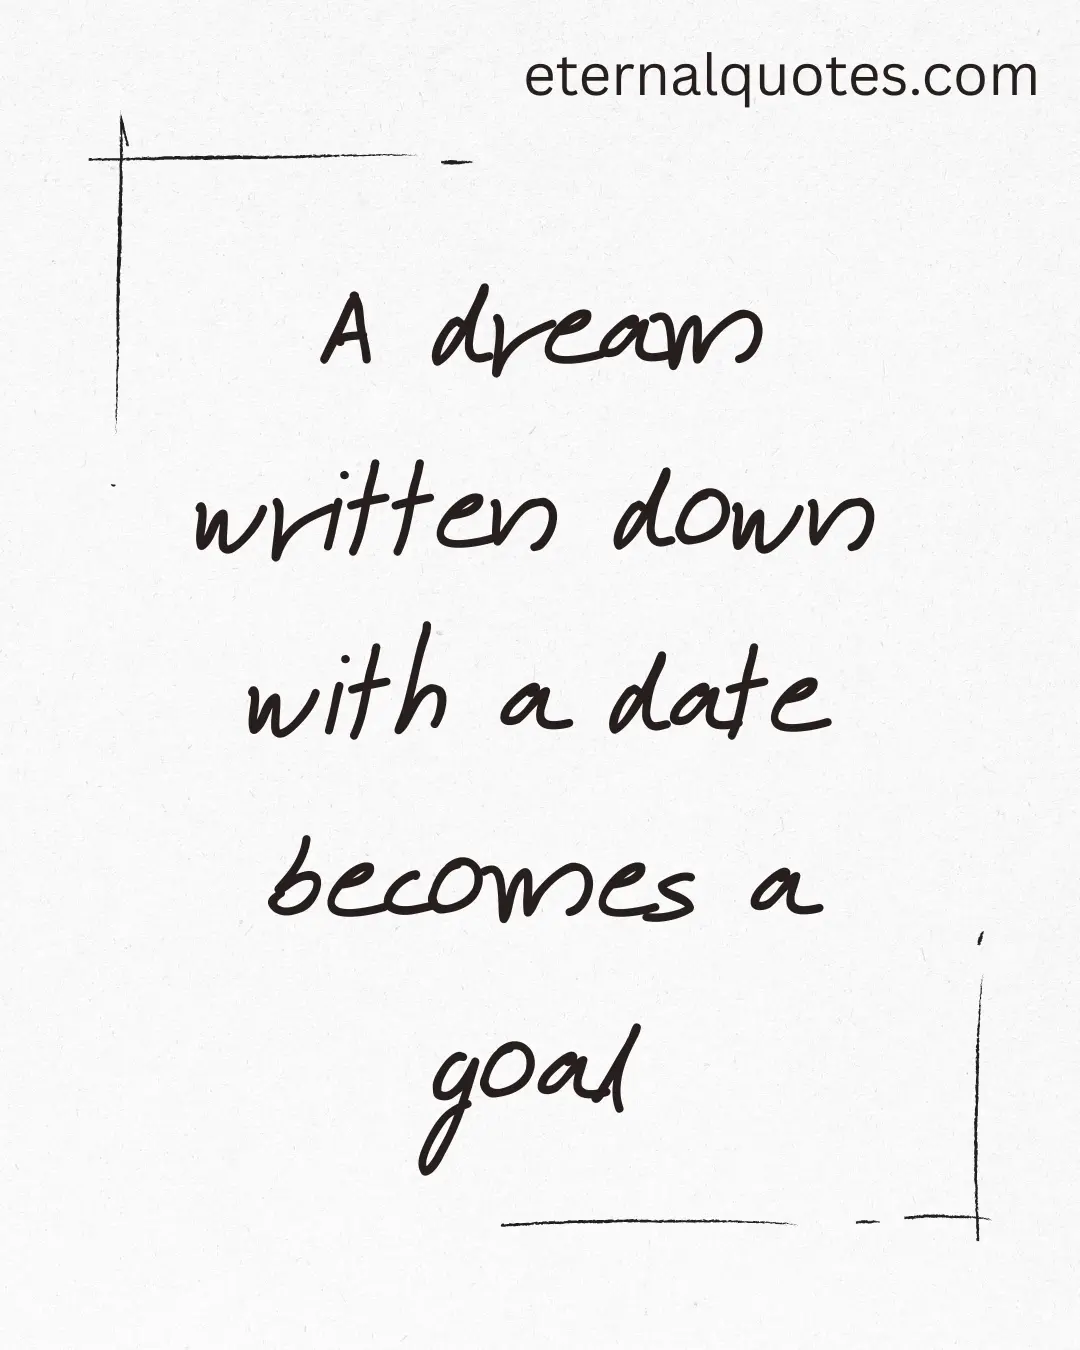 eternalquotes.com
A dream
written down
with a date
becomes a
goal